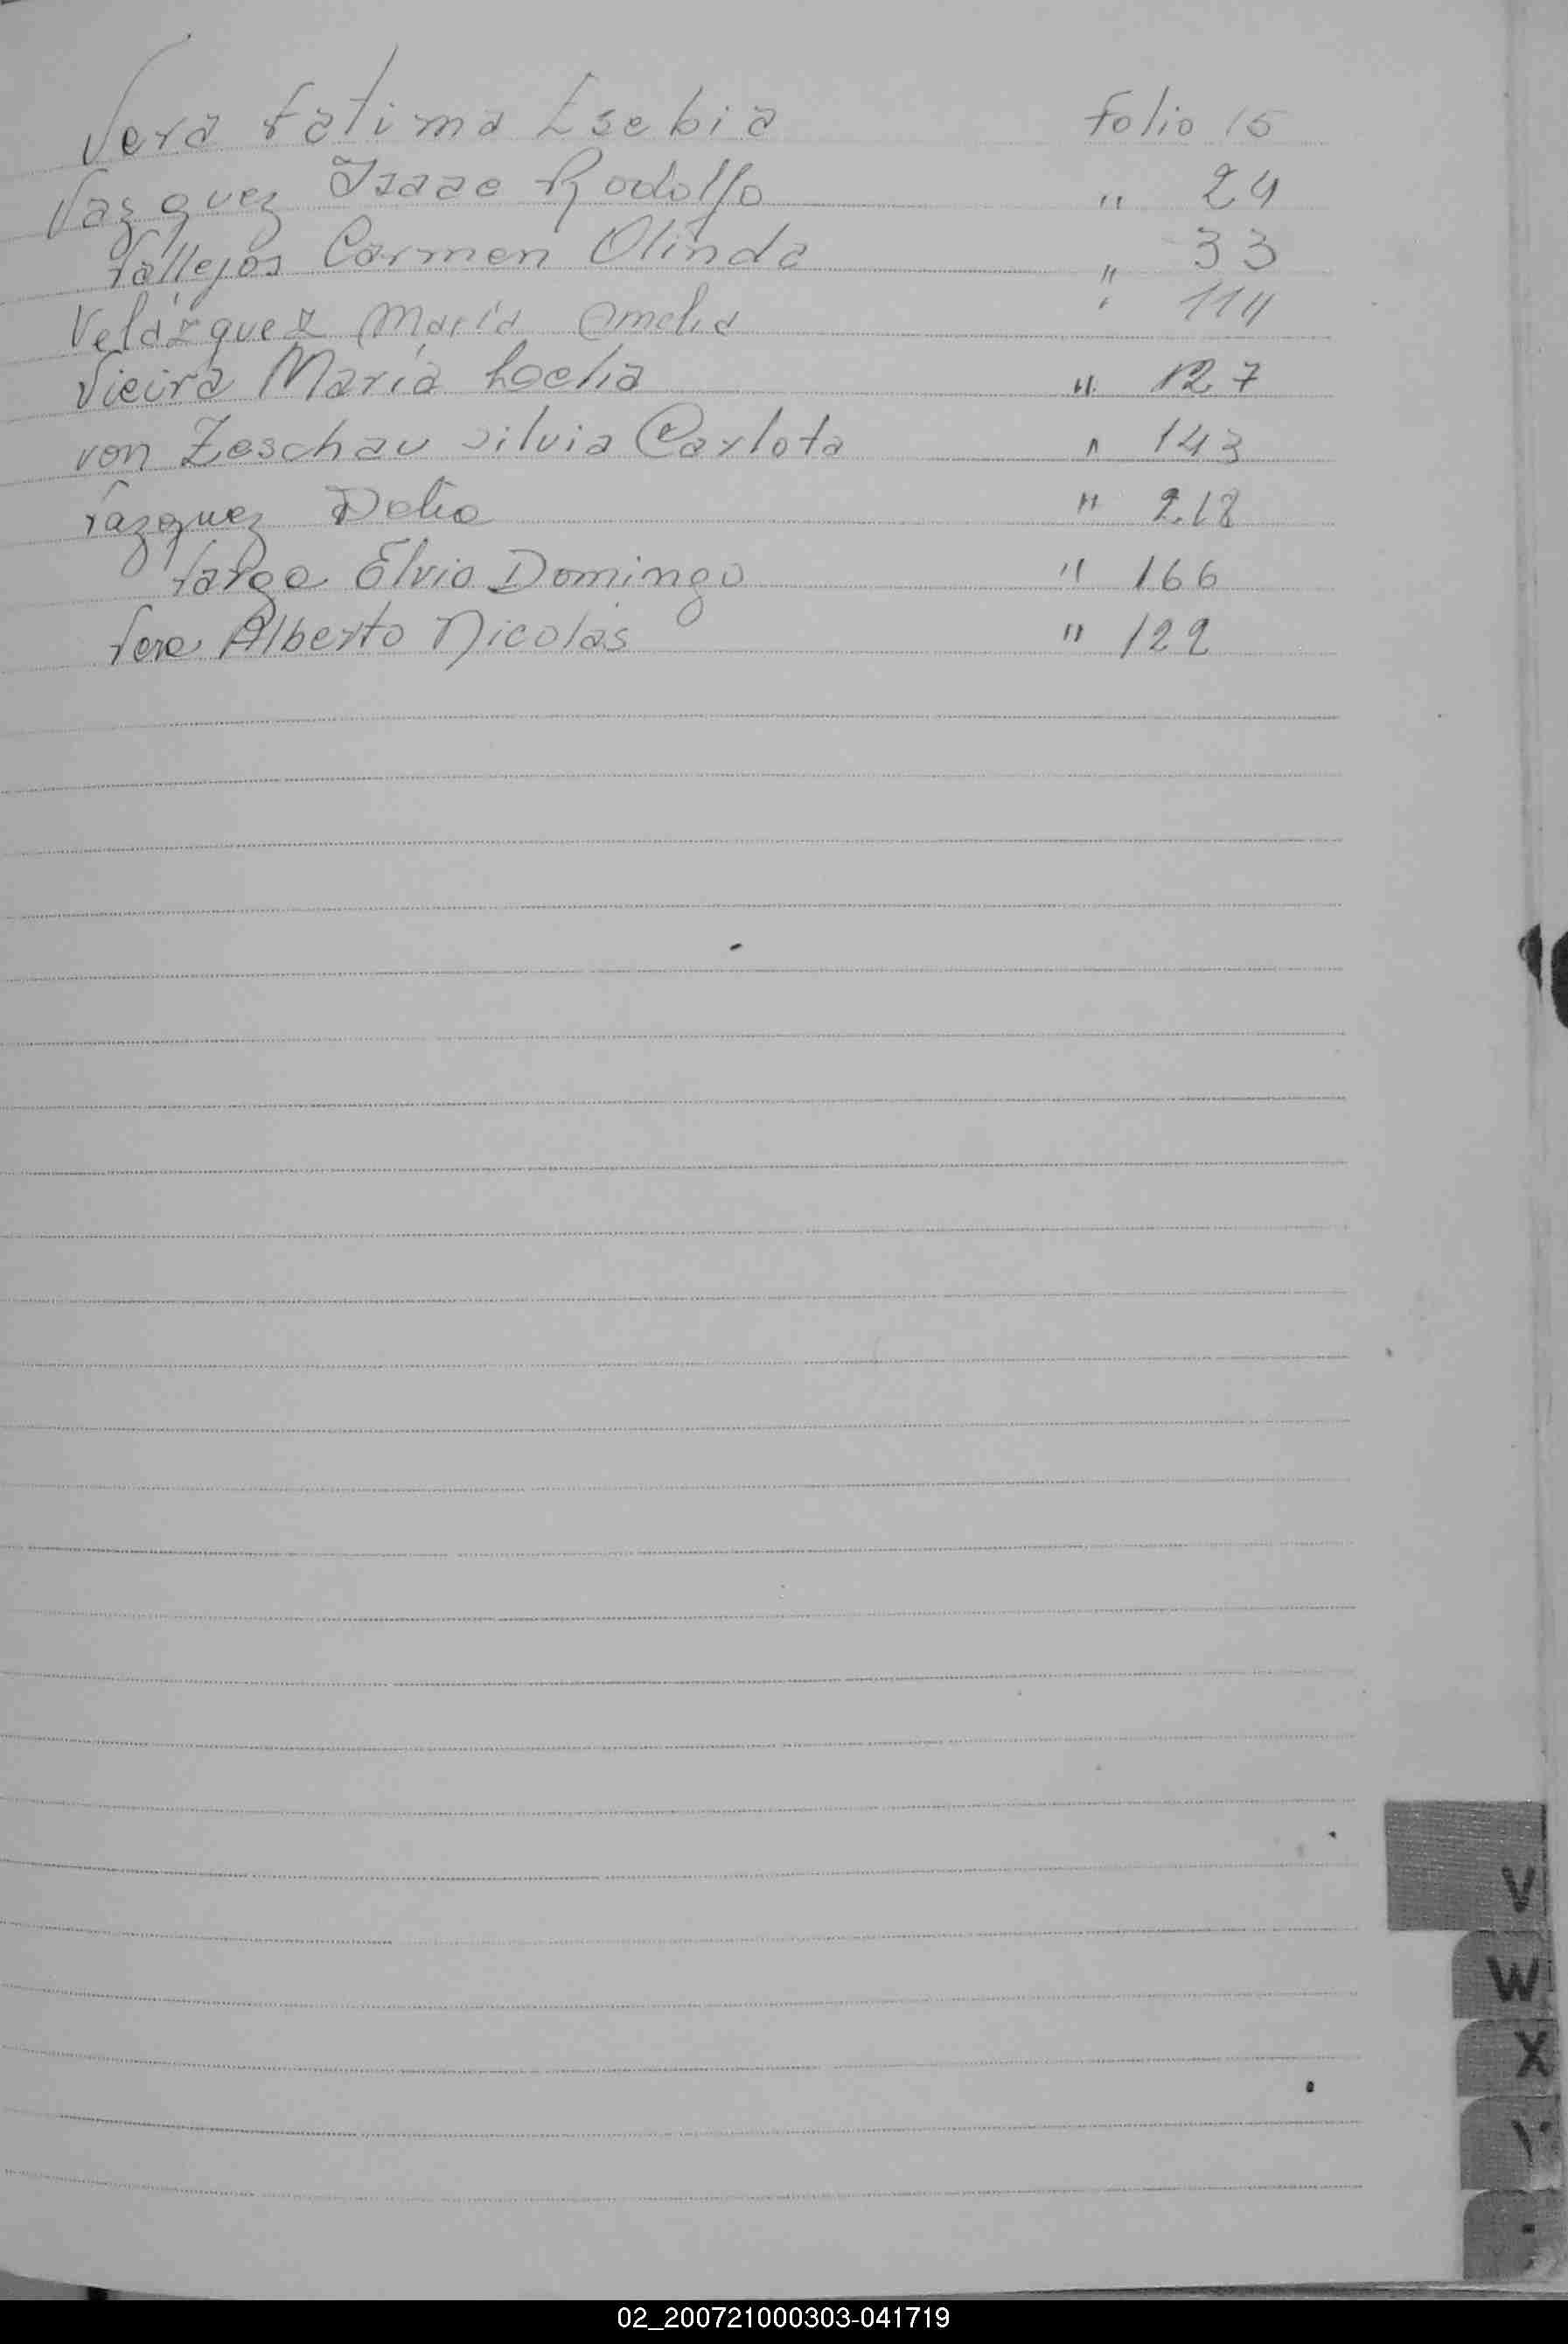 Vera Fatima Esebia Folio 15
Vazquez Isaac Rodolfo " 24
Vallejos Carmen Olinda " 33
Velázquez María Amelia " 114
Vieira María Loelia " 127
von Zeschau Silvia Carlota " 143
Vazquez Delia " 218
Varga Elvio Domingo " 166
Vera Alberto Nicolás " 122
V
W
X
Y
02_200721000303-041719